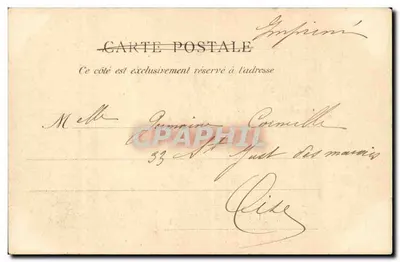 Imprimé
CARTE POSTALE
Ce côté est exclusivement réservé à l'adresse
Melle Germaine Cormille
CPAPHIL
33 St Just des marais
Oise